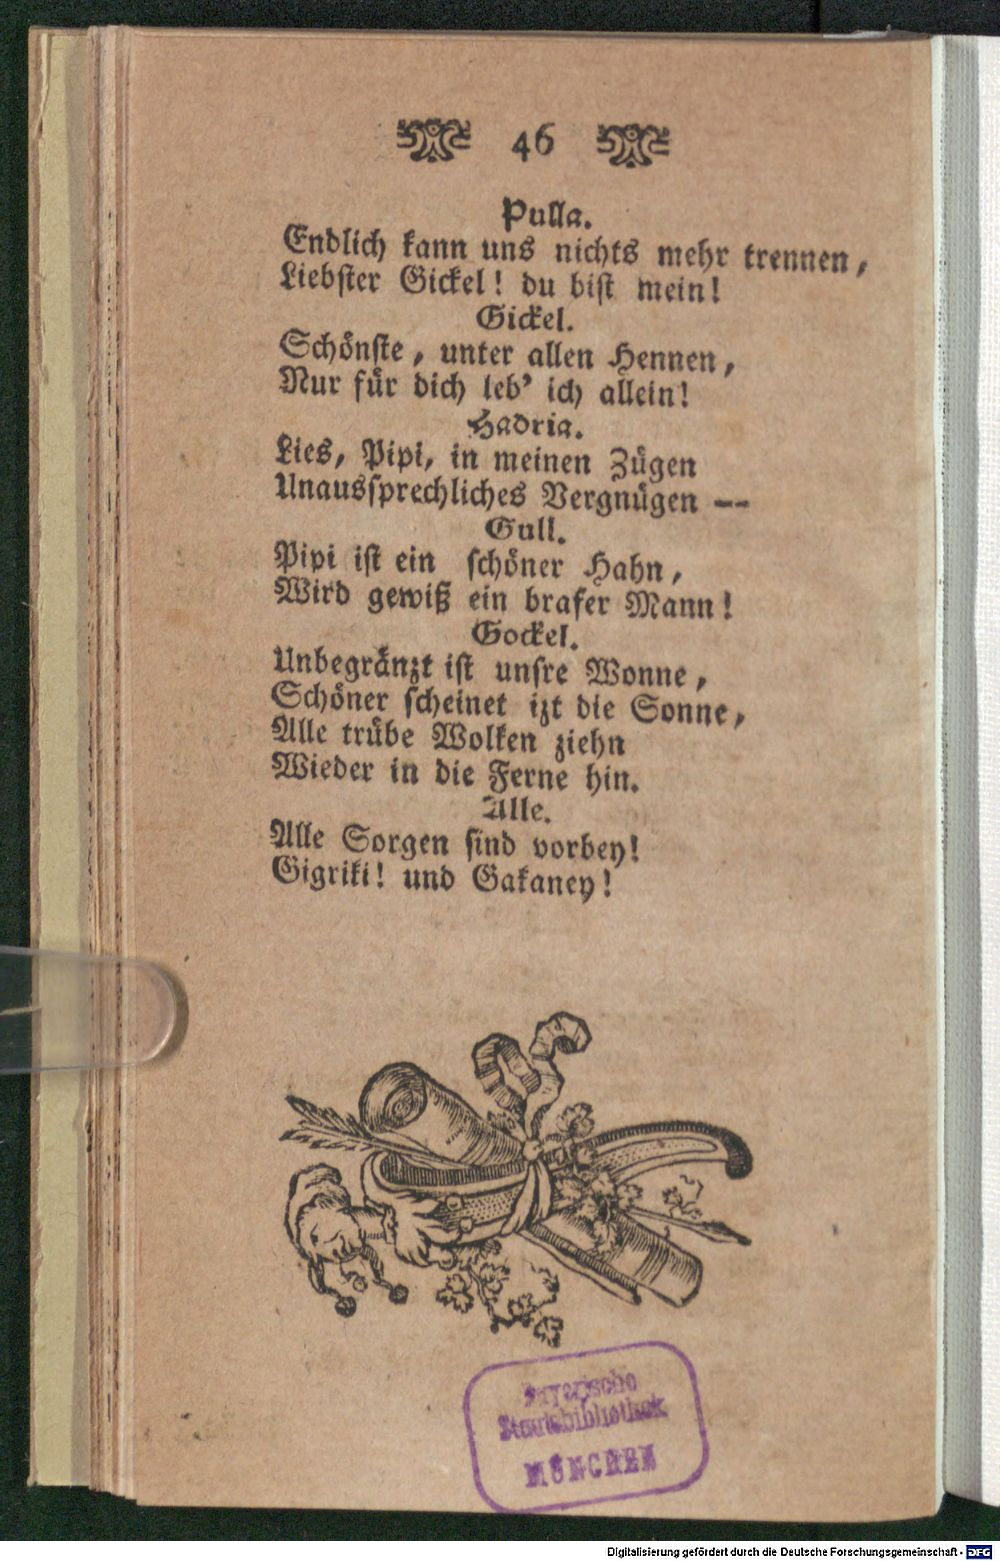 46
Pulla.
Endlich kann uns nichts mehr trennen,
Liebster Gickel! du bist mein!
Gickel.
Schönste, unter allen Hennen,
Nur für dich leb' ich allein!
Hadria.
Lies, Pipi, in meinen Zügen
Unaussprechliches Vergnügen --
Gull.
Pipi ist ein schöner Hahn,
Wird gewiß ein brafer Mann!
Gockel.
Unbegränzt ist unsre Wonne,
Schöner scheinet izt die Sonne,
Alle trübe Wolken ziehn
Wieder in die Ferne hin.
Alle.
Alle Sorgen sind vorbey!
Gigriki! und Gakaney!
Bayerische
Staatsbibliothek
MÜNCHEN
Digitalisierung gefördert durch die Deutsche Forschungsgemeinschaft - DFG